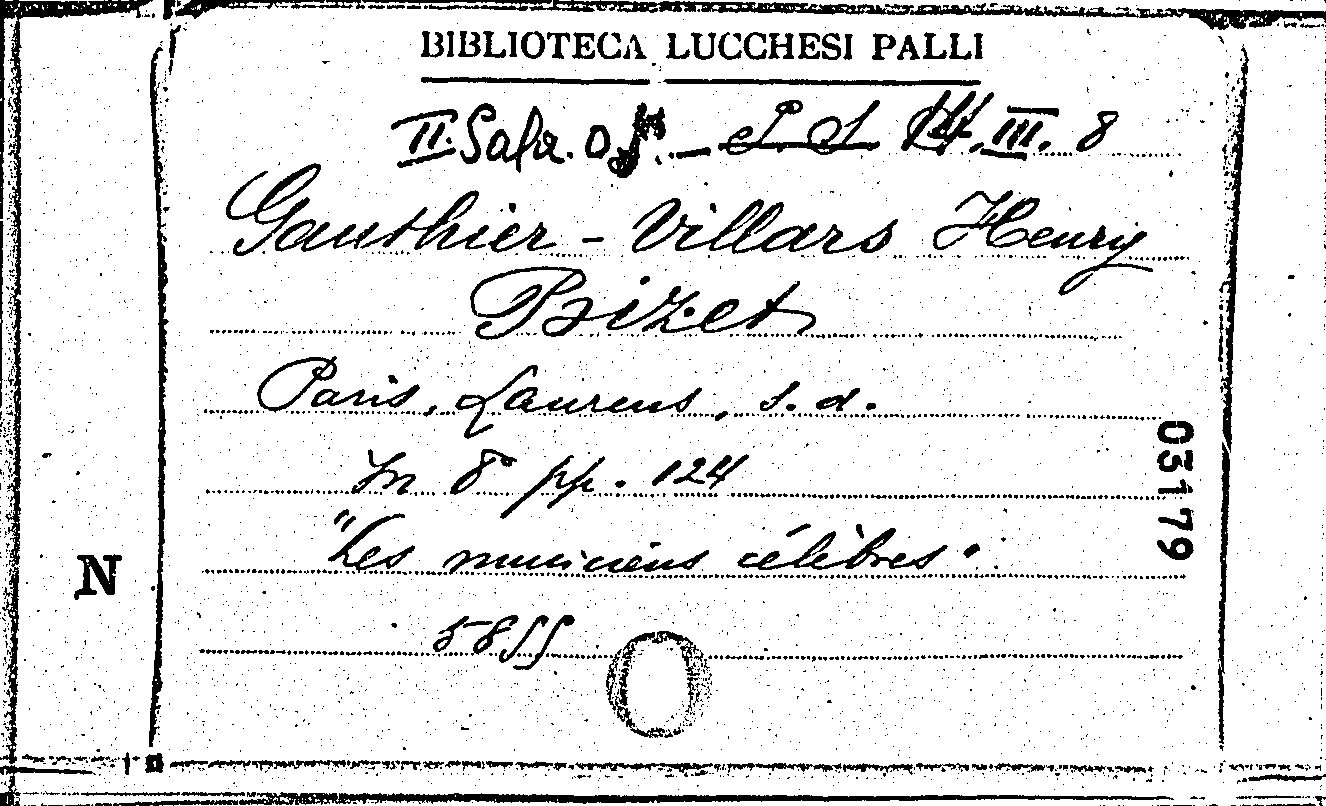 BIBLIOTECA LUCCHESI PALLI
II. Sala. III. 8
Gauthier - Villars Henry
Bizet
Paris, Laurens, s. d.
In 8° pp. 124
"Les musiciens célèbres".
03179
N